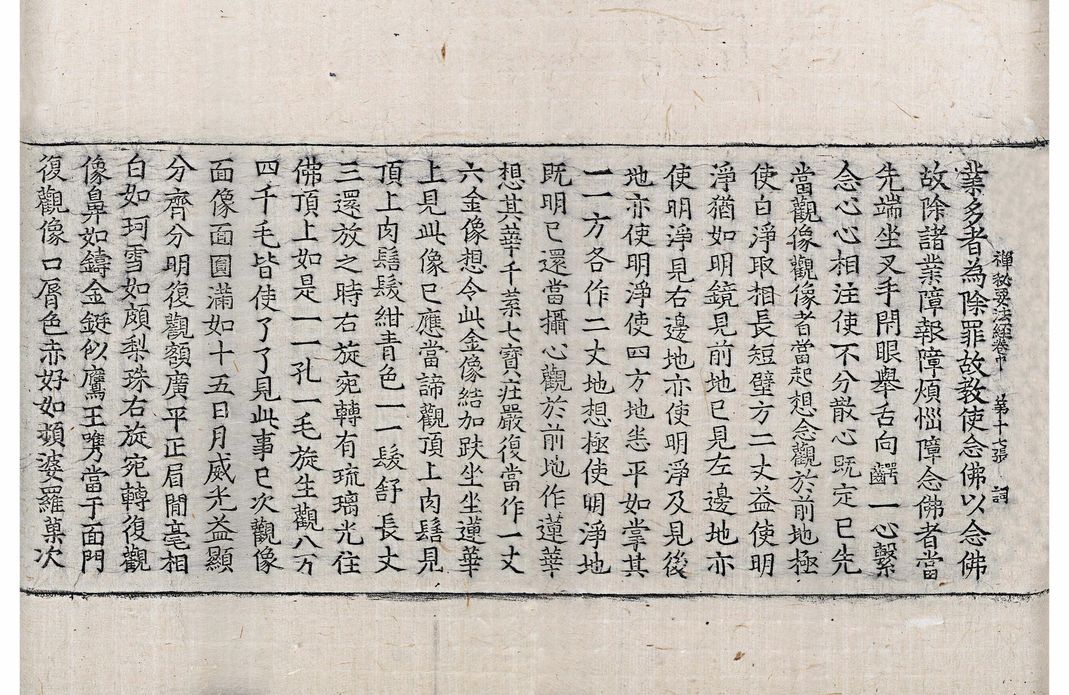 禪秘要法經卷中 第十七張 詞
業多者為除罪故教使念佛以念佛
故除諸業障報障煩惱障念佛者當
先端坐叉手閇眼舉舌向齶一心繫
念心心相注使不分散心既定已先
當觀像觀像者當起想念觀於前地極
使白淨取相長短壁方二丈益使明
淨猶如明鏡見前地已見左邊地亦
使明淨見右邊地亦使明淨及見後
地亦使明淨使四方地悉平如掌其
一一方各作二丈地想極使明淨地
既明已還當攝心觀於前地作蓮華
想其華千葉七寶莊嚴復當作一丈
六金像想令此金像結加趺坐坐蓮華
上見此像已應當諦觀頂上肉髻見
頂上肉髻髮紺青色一一髮舒長丈
三還放之時右旋宛轉有琉璃光住
佛頂上如是一一孔一毛旋生觀八万
四千毛皆使了了見此事已次觀像
面像面圓滿如十五日月威光益顯
分齊分明復觀額廣平正眉間毫相
白如珂雪如頗梨珠右旋宛轉復觀
像鼻如鑄金鋌似鷹王嘴當于面門
復觀像口脣色赤好如頻婆羅菓次